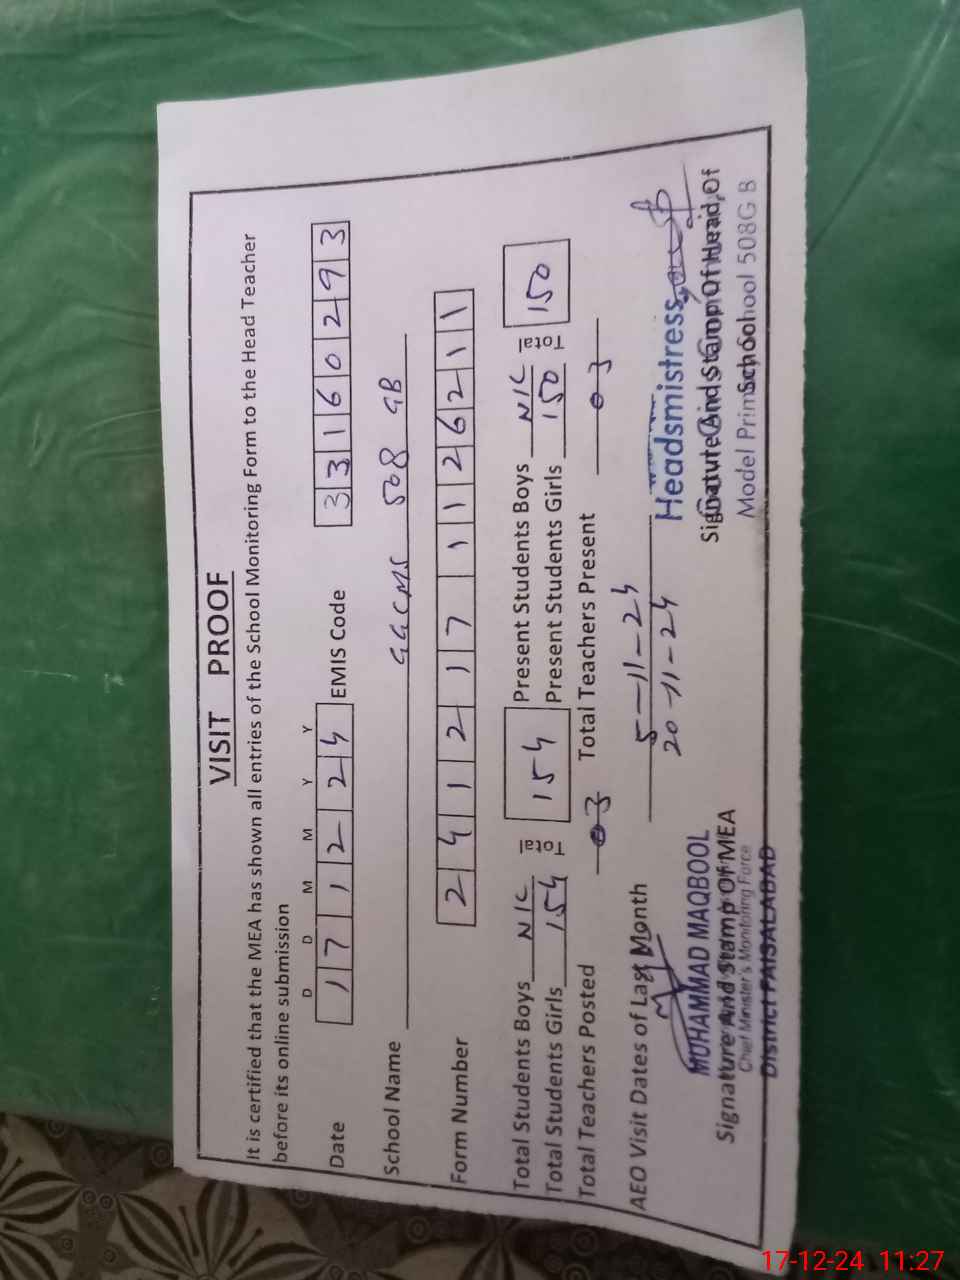 VISIT PROOF
It is certified that the MEA has shown all entries of the School Monitoring Form to the Head Teacher
before its online submission
D D M M Y Y
Date 17 12 24 EMIS Code 33160293
School Name GGCMS 508 GB
Form Number 2 4 1 2 1 7 1 1 2 6 2 1 1
Total Students Boys NIL Total 154 Present Students Boys NIL Total 150
Total Students Girls 154 Present Students Girls 150
Total Teachers Posted 03 Total Teachers Present 03
AEO Visit Dates of Last Month 5-11-24
20-11-24
MUHAMMAD MAQBOOL Headsmistress
Signature And Stamp Of MEA Signature And Stamp Of Head Of
Chief Minister's Monitoring Force Model Primary School 508GB
District FAISALABAD School
17-12-24 11:27